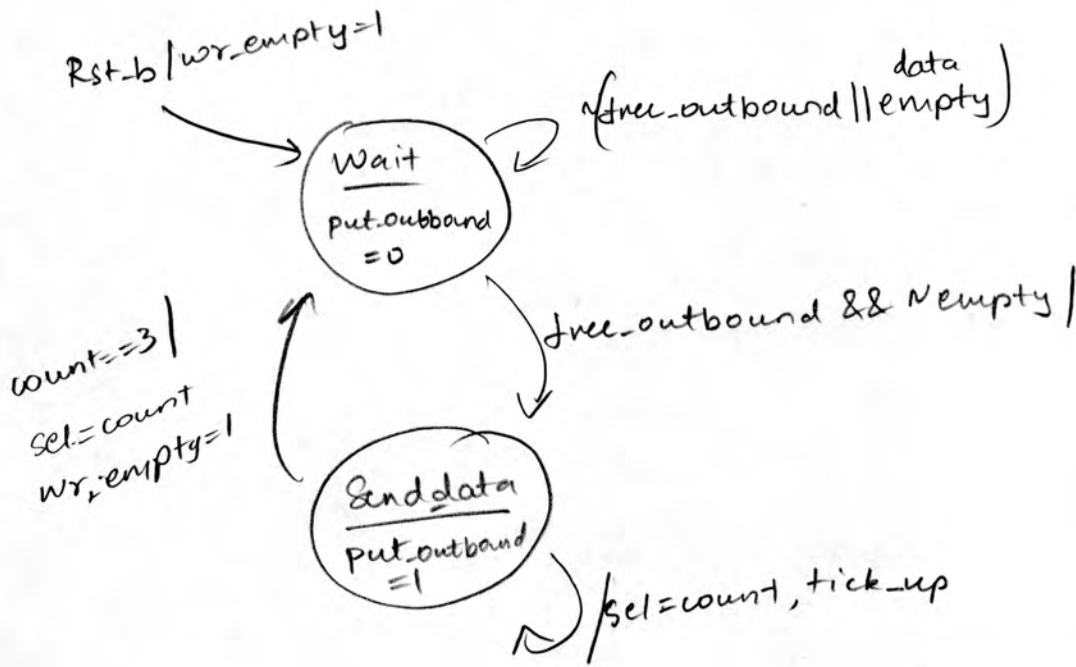 Rst_b / wr_empty=1
data
~(free_outbound || empty)
Wait
put_outbound
=0
free_outbound && ~empty /
count==3 /
sel=count
wr_empty=1
Send data
put_outbound
=1
/ sel=count, tick_up